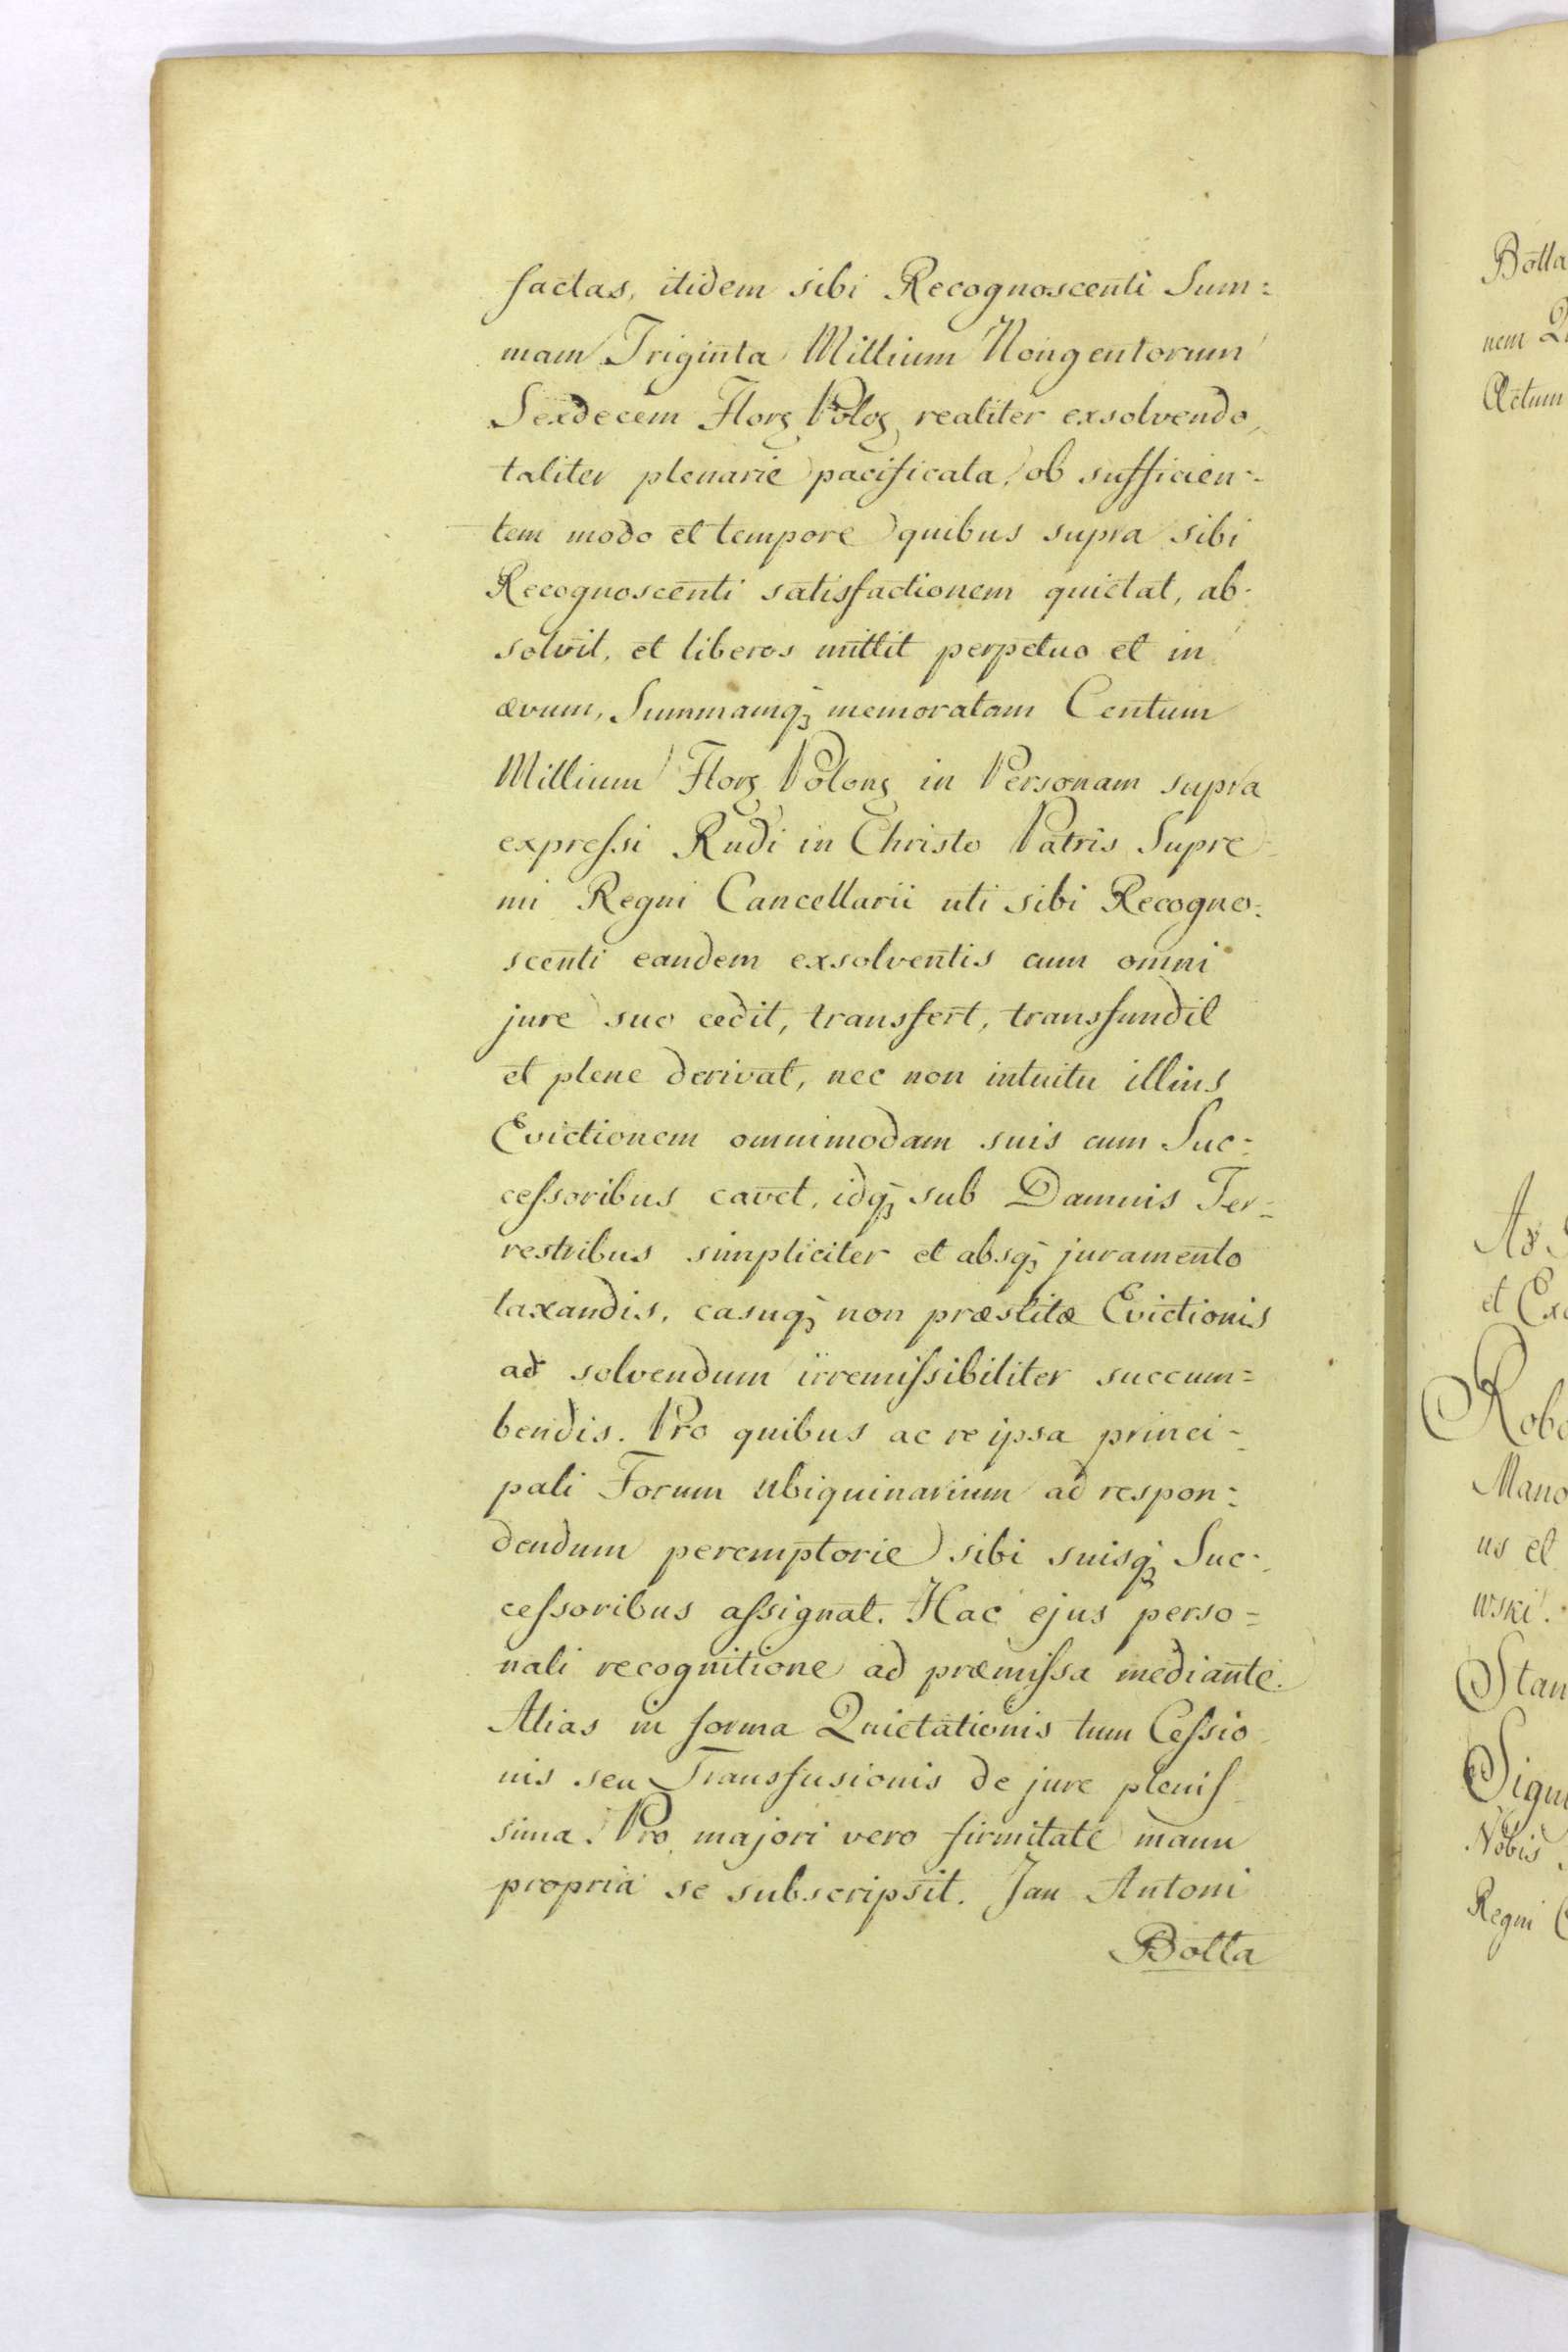 factas, itidem sibi Recognoscenti Sum=
mam Triginta Millium Nongentorum
Sexdecem Florꝫ Poloꝫ realiter exsolvendo,
taliter plenarie pacificata, ob sufficien=
tem modo et tempore quibus supra sibi
Recognoscenti satisfactionem quietat, ab=
solvit, et liberos mittit perpetuo et in
ævum, Summamqꝫ memoratam Centum
Millium Florꝫ Polonꝫ in Personam supra
expreſsi Rndi in Christo Patris Supre=
mi Regni Cancellarii uti sibi Recogno=
scenti eandem exsolventis cum omni
jure suo cedit, transfert, transfundit
et plene derivat, nec non intuitu illius
Evictionem omnimodam suis cum Suc=
ceſsoribus cavet, idqꝫ sub Damnis Ter=
restribus simpliciter et absqꝫ juramento
taxandis, casuqꝫ non præstitæ Evictionis
ad solvendum irremiſsibiliter succum=
bendis. Pro quibus ac re ipsa princi=
pali Forum ubiquinarium ad respon=
dendum peremptorie sibi suisqꝫ Suc=
ceſsoribus aſsignat. Hac ejus perso=
nali recognitione ad præmiſsa mediante.
Alias in forma Quietationis tum Ceſsio=
nis seu Transfusionis de jure pleniſ=
sima. Pro majori vero firmitate manu
propria se subscripsit. Jan Antoni
Botta
Botta
nem
Actum
Ad
et
Robo
Mano
us et
wski.
Stan
Sign
Nobis
Regni